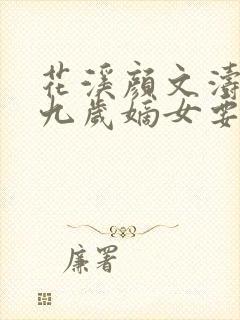 花溪顔文濤
九歲嫡女要
廉署